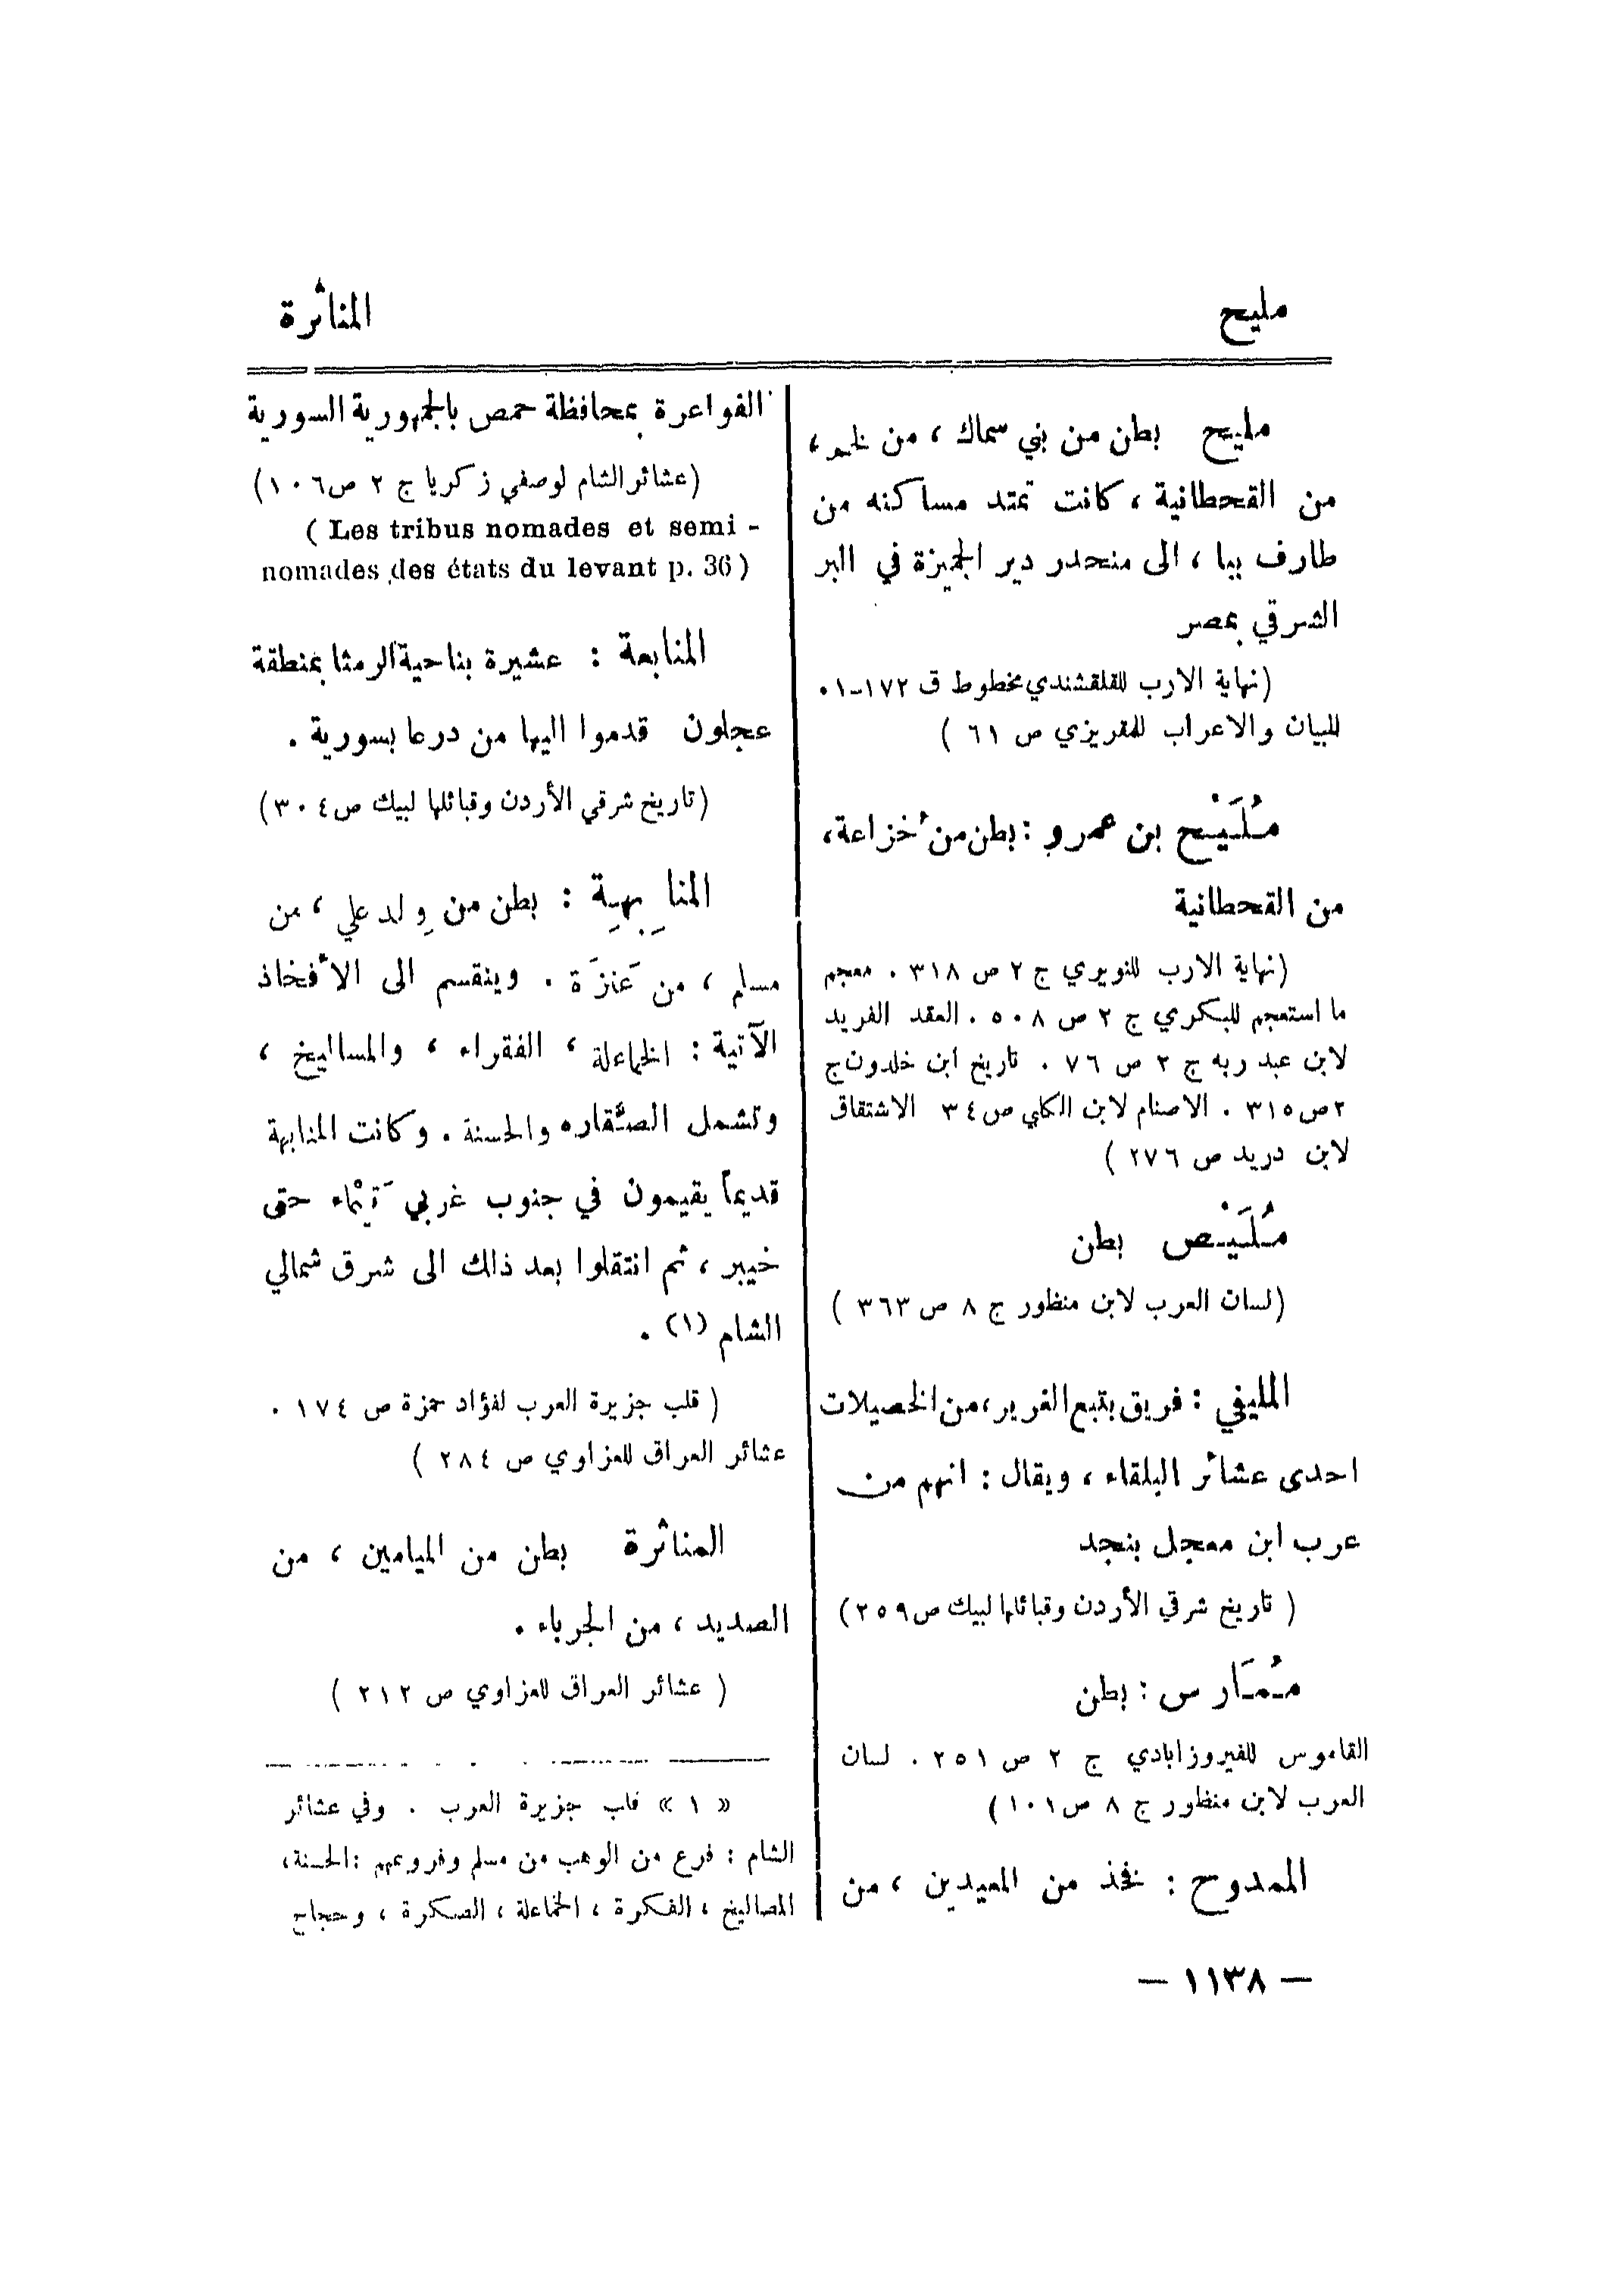 مليح
المناثرة
مليح بطن من بني سماك ، من لخم ،
من القحطانية ، كانت تمتد مساكنه من
طارف ببا ، الى منحدر دير الجميزة في البر
الشرقي بمصر
(نهاية الارب للقلقشندي مخطوط ق ١٧٢-٠١
للبيان والاعراب للمقريزي ص ٦١ )
مُلَيْح بن عمرو : بطن من خُزاعة ،
من القحطانية
(نهاية الارب للنويري ج ٢ ص ٣١٨ . معجم
ما استعجم للبكري ج ٢ ص ٥٠٨ . العقد الفريد
لابن عبد ربه ج ٢ ص ٧٦ . تاريخ ابن خلدون ج
٢ ص ٣١٥ . الاصنام لابن الكلبي ص ٣٤ الاشتقاق
لابن دريد ص ٢٧٦ )
مُلَيْص بطن
(لسان العرب لابن منظور ج ٨ ص ٣٦٣ )
المليفي : فريق يتبع الغرير ، من الخصيلات
احدى عشائر البلقاء ، ويقال : انهم من
عرب ابن معجل بنجد
( تاريخ شرقي الأردن وقبائلها لبيك ص ٢٥٩)
مُمَارس : بطن
القاموس للفيروزابادي ج ٢ ص ٢٥١ . لسان
العرب لابن منظور ج ٨ ص ١٠١)
الممدوح : فخذ من المعيدين ، من
الفواعرة بمحافظة حمص بالجمهورية السورية
(عشائر الشام لوصفي زكريا ج ٢ ص ١٠٦)
( Les tribus nomades et semi -
nomades des états du levant p. 36 )
المنابعة : عشيرة بناحية الرمثا بمنطقة
عجلون قدموا اليها من درعا بسورية .
(تاريخ شرقي الأردن وقبائلها لبيك ص ٣٠٤)
المنابِهِة : بطن من وِلد علي ، من
مسلم ، من عَنزَة . وينقسم الى الأفخاذ
الآتية : الخماعلة ، الفقراء ، والمساليخ ،
وتشمل الصُّقاره والحسنة . وكانت المنابهة
قديماً يقيمون في جنوب غربي تَيْماء حتى
خيبر ، ثم انتقلوا بعد ذلك الى شرق شمالي
الشام (١) .
( قلب جزيرة العرب لفؤاد حمزة ص ١٧٤ .
عشائر العراق للعزاوي ص ٢٨٤ )
المناثرة بطن من الميامين ، من
الصديد ، من الجرباء .
( عشائر العراق للعزاوي ص ٢١٢ )
« ١ » قلب جزيرة العرب . وفي عشائر
الشام : فرع من الوهب من مسلم وفروعهم : الحسنة ،
المصاليخ ، الفكرة ، الخماعلة ، الصكرة ، وحجاج
— ١١٣٨ —